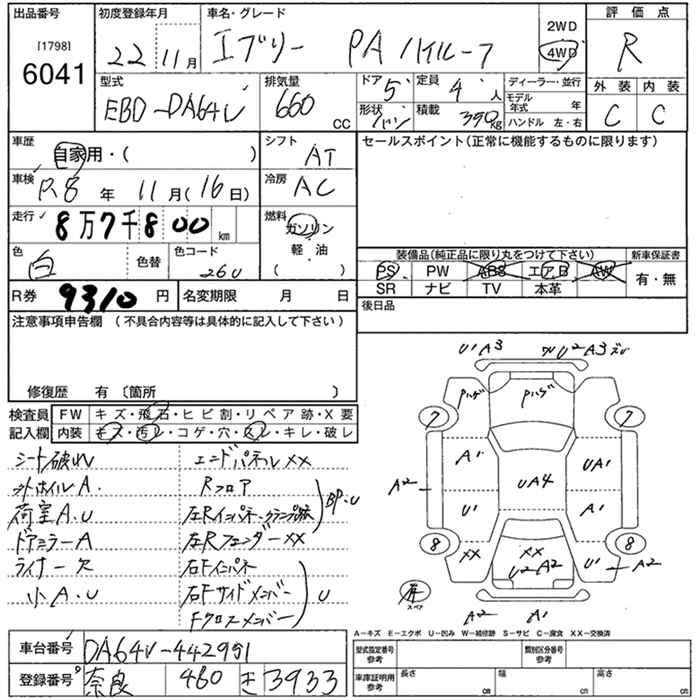 出品番号
[1798]
6041
初度登録年月
22 11月
車名・グレード
エブリー PA ハイルーフ
2WD
4WD
評価点
R
型式
EBD-DA64V
排気量
660
cc
ドア 5
定員 4 人
形状 バン
積載 350 kg
ディーラー・並行
モデル年式 年
ハンドル 左・右
外装 内装
C C
車歴
自家用・( )
シフト
AT
セールスポイント(正常に機能するものに限ります)
車検
R8 年 11 月(16日)
冷房
AC
走行
8万7千800 km
燃料
ガソリン
軽・油
( )
色
白
色替
色コード
26U
装備品(純正品に限り丸をつけて下さい)
新車保証書
PS PW ABS エアB AW
有・無
SR ナビ TV 本革
R券 9310 円
名変期限 月 日
後日品
注意事項申告欄 (不具合内容等は具体的に記入して下さい)
修復歴 有〔箇所 〕
検査員
記入欄
FW キズ・飛石・ヒビ割・リペア跡・X要
内装 キズ・汚レ・コゲ・穴・スレ・キレ・破レ
シート破れ
エンドパネルXX
外ホイルA.
Rフロア
荷室A.U
BP.U
ドアミラーA
左RフェンダーXX
ライナー欠
右Fインパネ
小A.U
右Fサイドメンバー
U
Fクロスメンバー
U1 A3
U2 A3
7
7
A1
UA1
UA4
A2
U1
A1
8
8
XX
XX
U2 A2
U1
A2
スペア
A2
A1
A-キズ E-エクボ U-凹み W-補修跡 S-サビ C-腐食 XX-交換済
車台番号 DA64V-442991
登録番号 奈良 480 き 3933
型式指定番号
参考
類別区分番号
参考
車庫証明用
参考
長さ cm
幅 cm
高さ cm